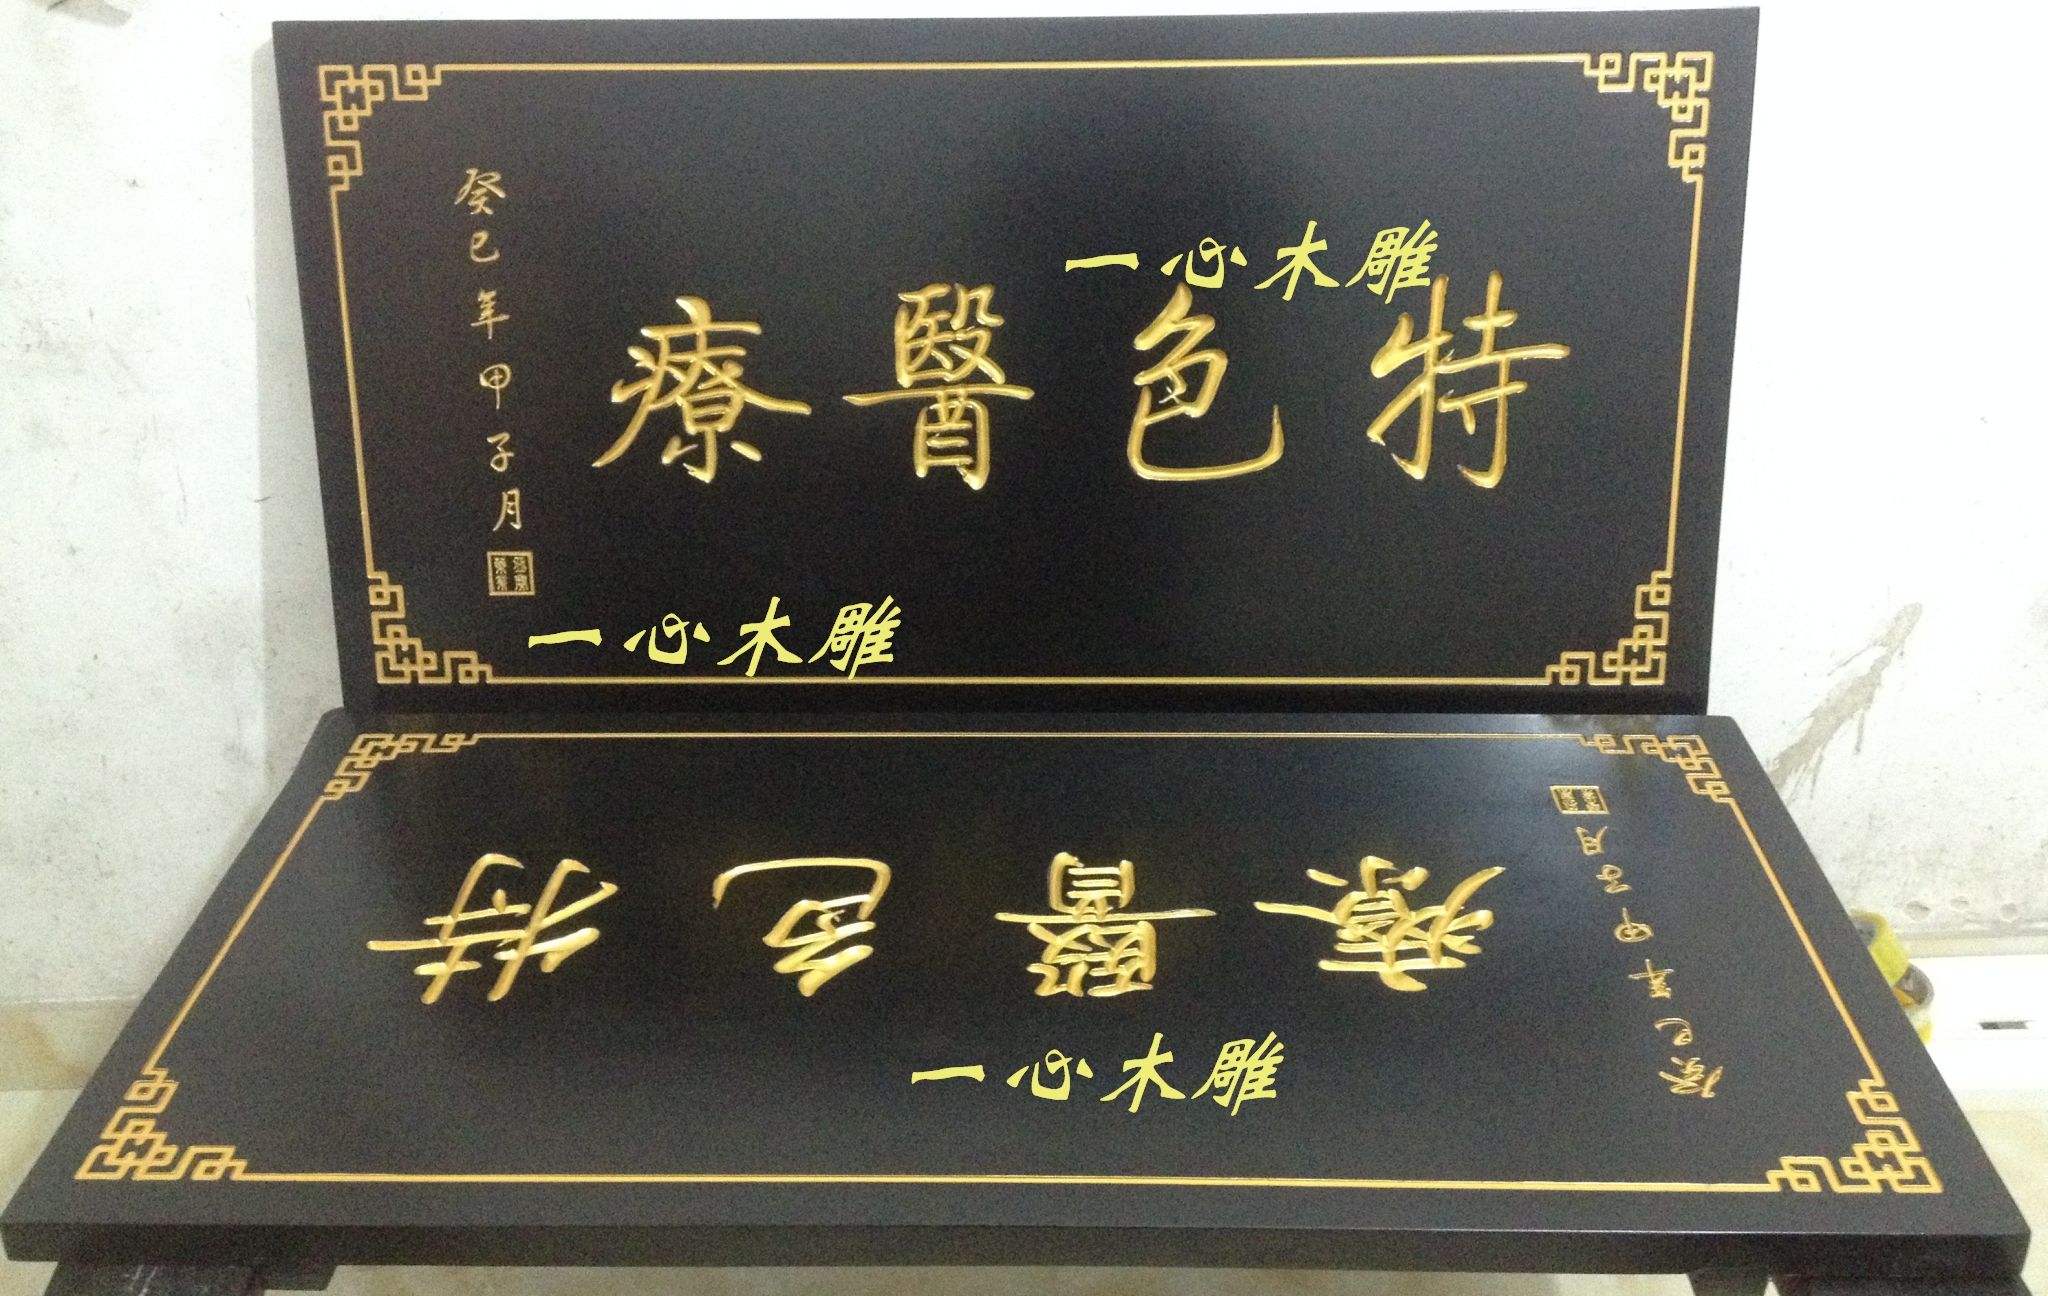 特色醫療
癸巳年甲子月
一心木雕
一心木雕
特色醫療
癸巳年甲子月
一心木雕